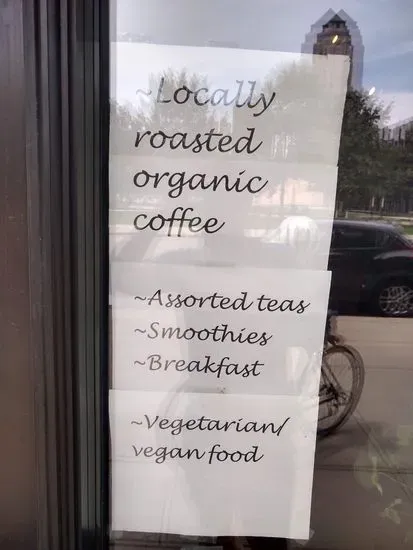 ~Locally
roasted
organic
coffee
~Assorted teas
~Smoothies
~Breakfast
~Vegetarian/
vegan food